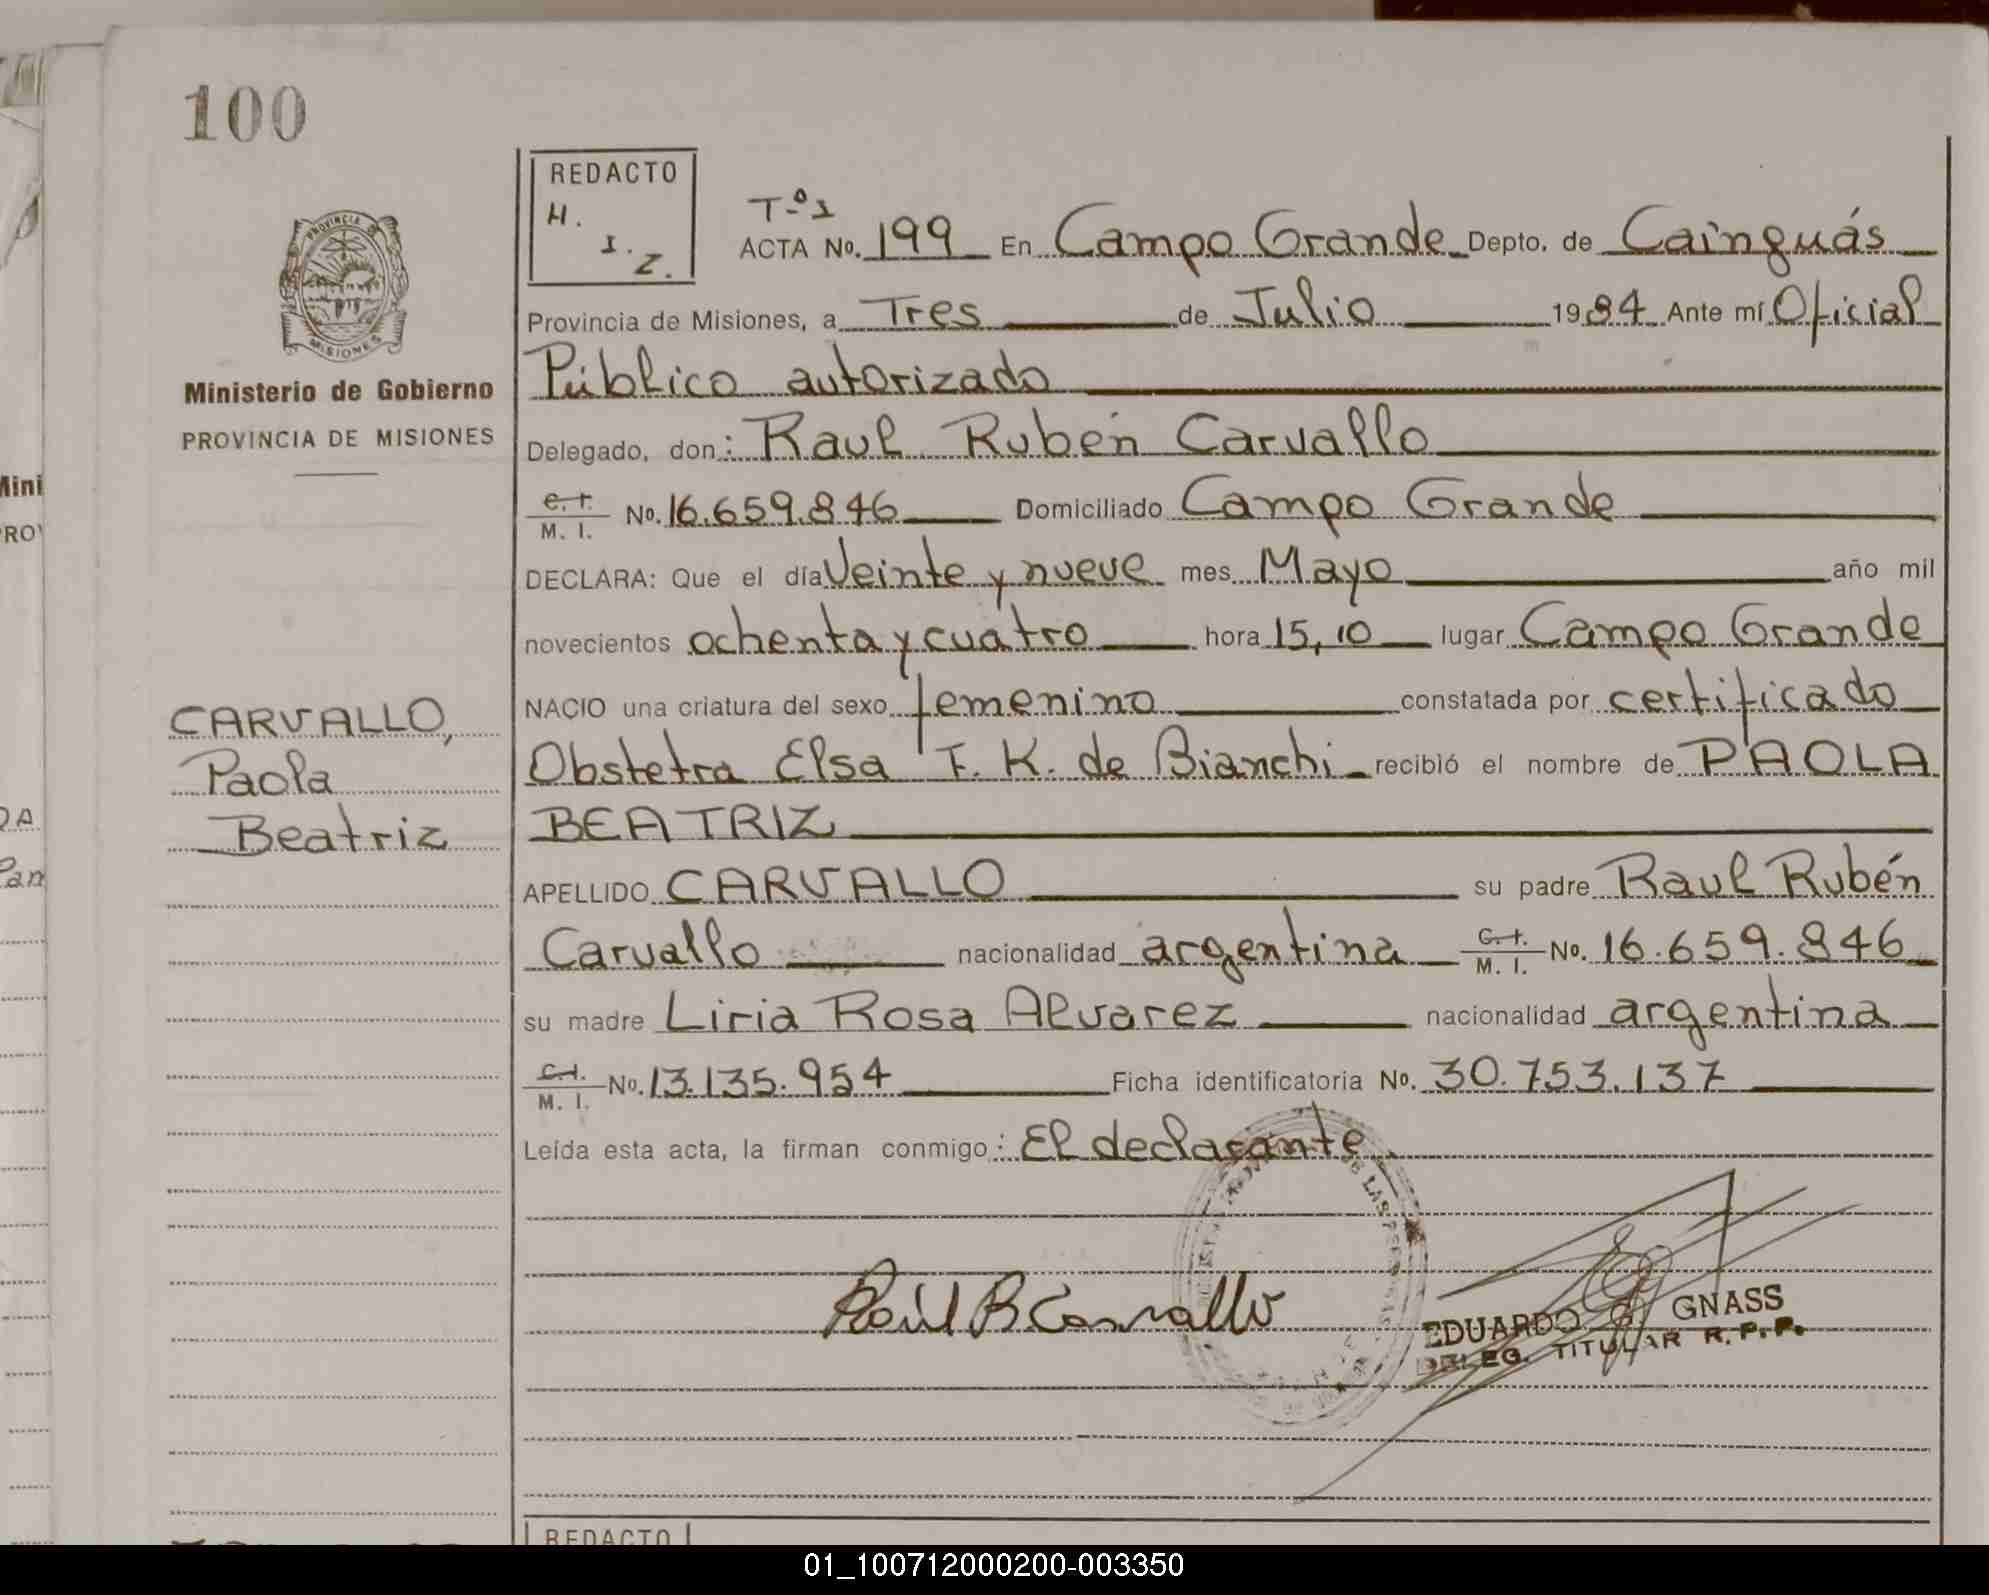 100
REDACTO
H.
I.
Z.
Tº 1
ACTA No. 199 En Campo Grande Depto. de Cainguás
Provincia de Misiones, a Tres de Julio 1984 Ante mí Oficial
Público autorizado
Delegado, don: Raul Rubén Carvallo
C. I.
M. I. No. 16.659.846 Domiciliado Campo Grande
DECLARA: Que el día Veinte y nueve mes Mayo año mil
novecientos ochenta y cuatro hora 15,10 lugar Campo Grande
NACIO una criatura del sexo femenino constatada por certificado
Obstetra Elsa F. K. de Bianchi recibió el nombre de PAOLA
BEATRIZ
APELLIDO CARVALLO su padre Raul Rubén
Carvallo nacionalidad argentina C. I. M. I. No. 16.659.846
su madre Liria Rosa Alvarez nacionalidad argentina
C. I. M. I. No. 13.135.954 Ficha identificatoria No. 30.753.137
Leída esta acta, la firman conmigo: El declarante
Raúl R Carvallo
EDUARDO GNASS
DELEG. TITULAR R. P. P.
PROVINCIA
MISIONES
Ministerio de Gobierno
PROVINCIA DE MISIONES
CARVALLO,
Paola
Beatriz
REDACTO
01_100712000200-003350